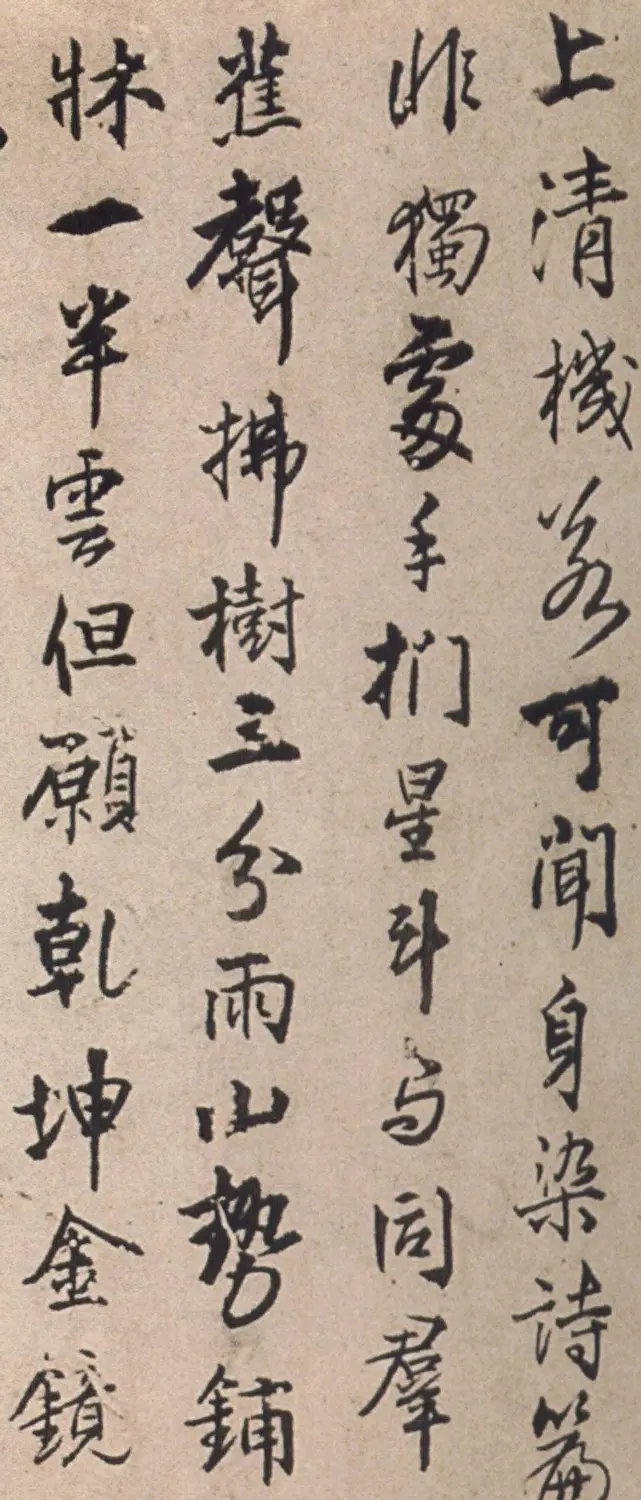 上清機若可聞身染詩篇
非獨處手捫星斗与同羣
蕉聲拂樹三分雨山勢鋪
牀一半雲但願乾坤金鏡